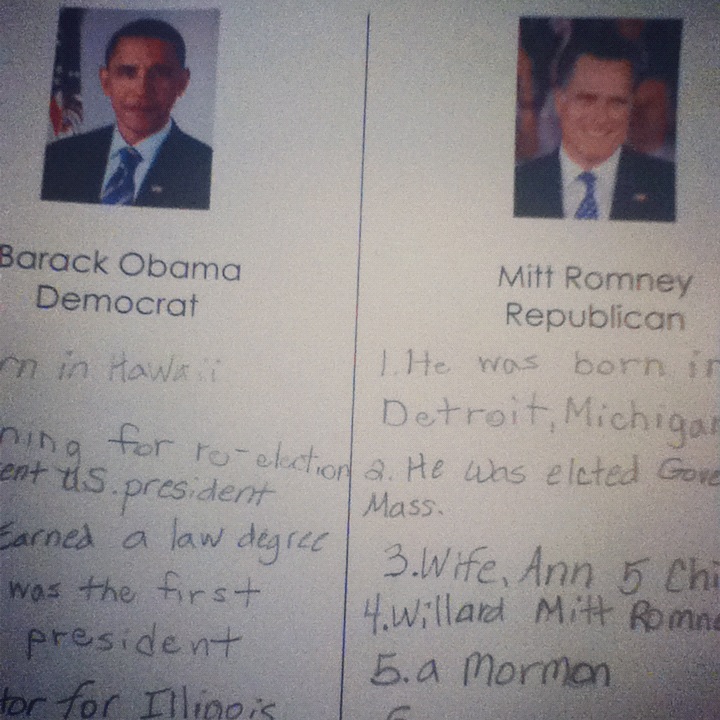 Barack Obama
Democrat
rn in Hawaii
ning for re-election
ent U.S. president
Earned a law degree
was the first
president
tor for Illinois
Mitt Romney
Republican
1. He was born in
Detroit, Michigan
2. He was elcted Gove
Mass.
3. Wife, Ann 5 Chi
4. Willard Mitt Romne
5. a Mormon